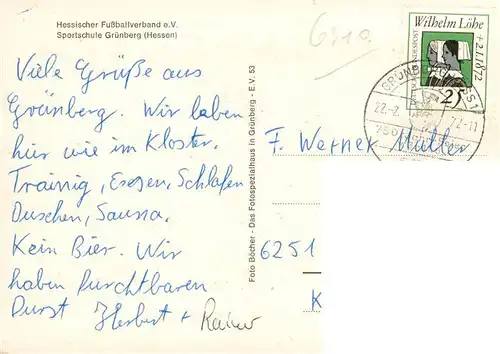 Hessischer Fußballverband e.V.
Sportschule Grünberg (Hessen)
Viele Grüße aus
Grünberg. Wir leben
hier wie im Kloster.
Trainig, Essen, Schlafen
Duschen, Sauna.
Kein Bier. Wir
haben furchtbaren
Durst Herbert + Rainer
Foto Böcher - Das Fotospezialhaus in Grünberg - E.V. 53
Wilhelm Löhe
+2.1.1872
BUNDESPOST
25
GRÜNB
22.-2.
72-11
F. Werner Müller
6251
K